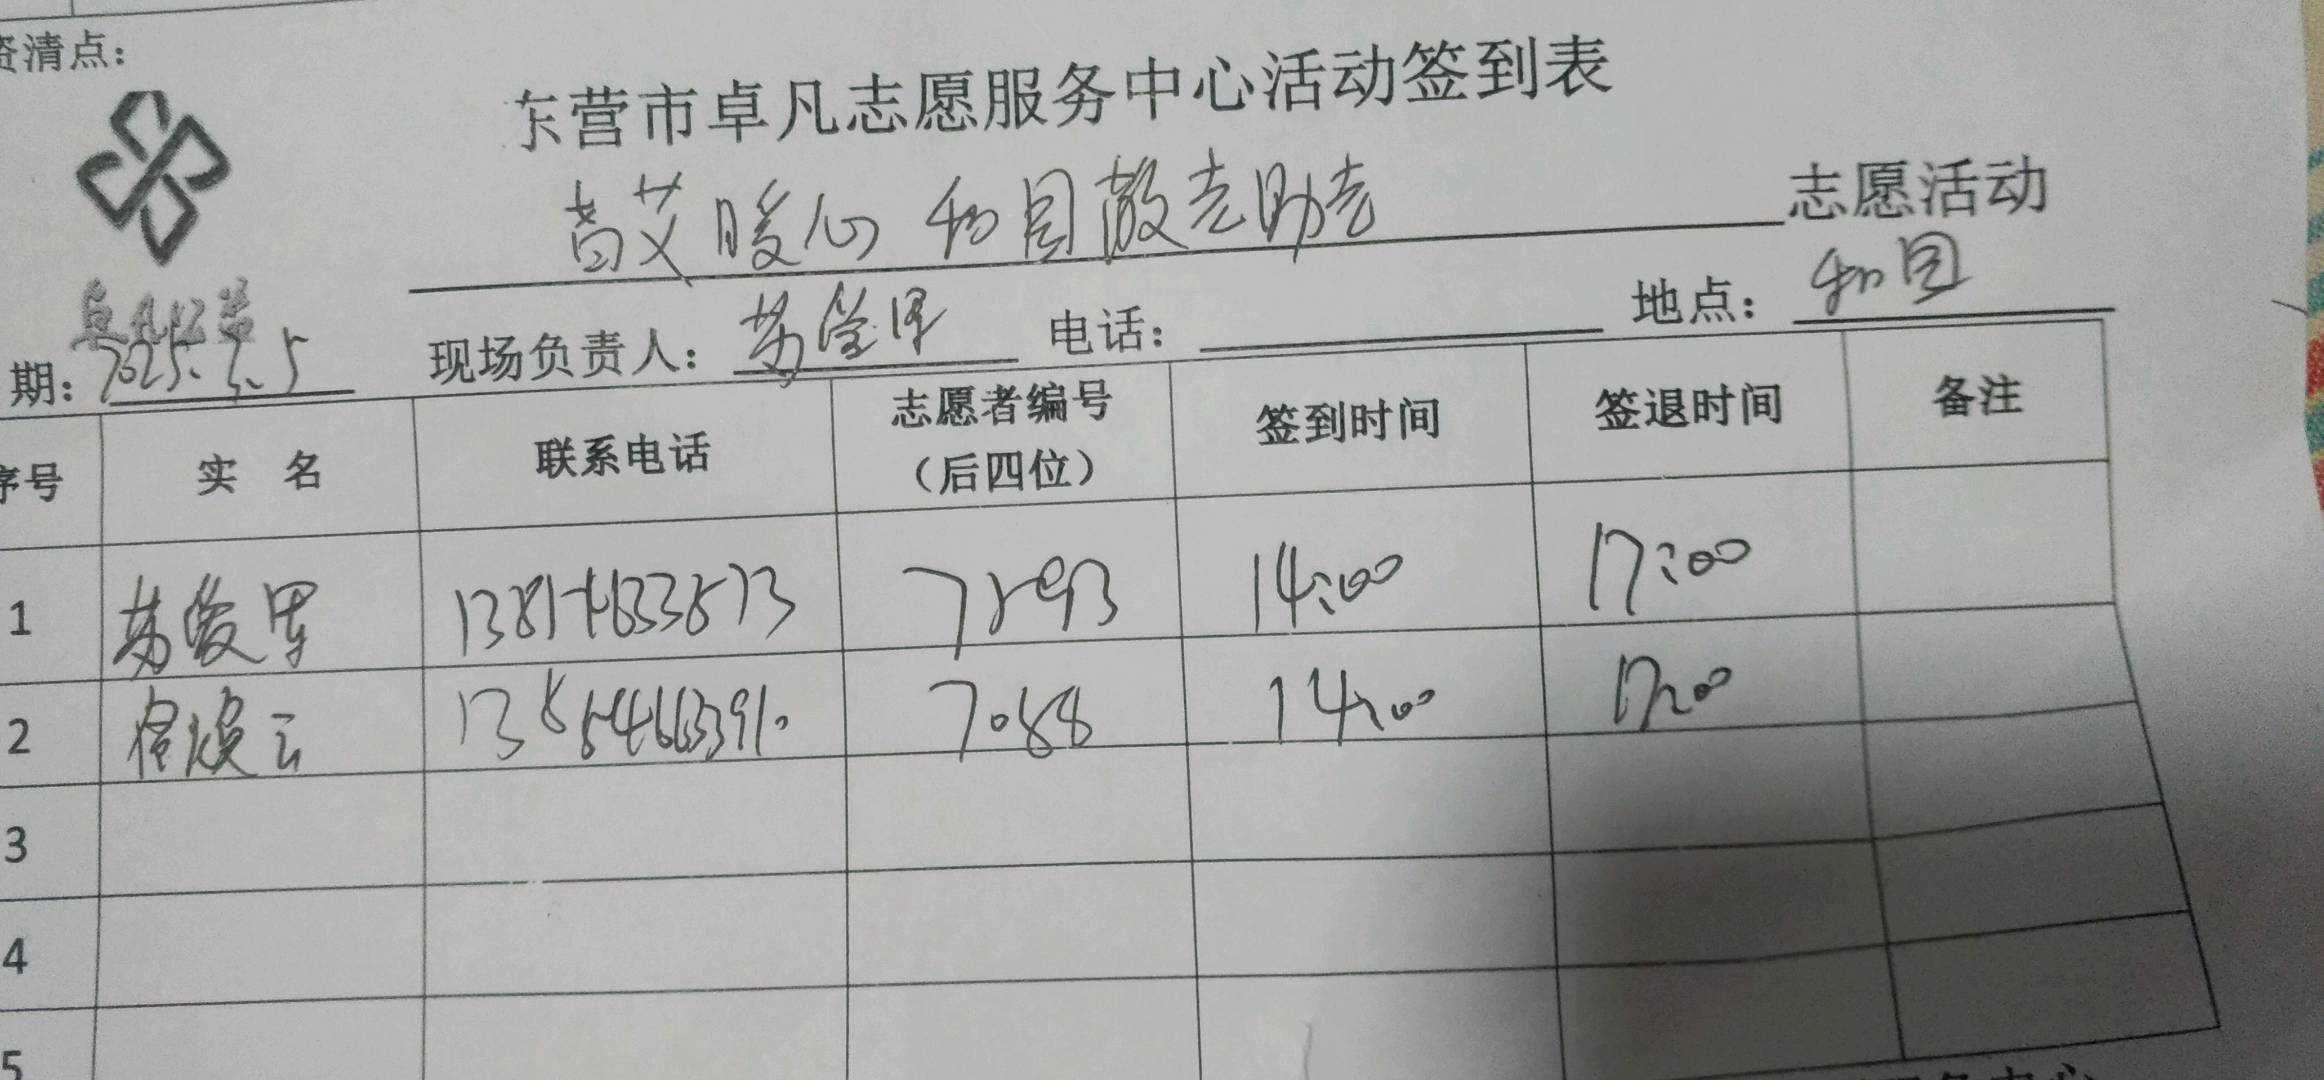 资清点：
东营市卓凡志愿服务中心活动签到表
艾暖心 和园敬老助老 志愿活动
卓凡公益
期： 2025.2.5 现场负责人： 苏俊军 电话： 地点： 和园
序号 实 名 联系电话 志愿者编号（后四位） 签到时间 签退时间 备注
1 苏俊军 7593 14:00 17:00
2 7088 14:00 17:00
3
4
5